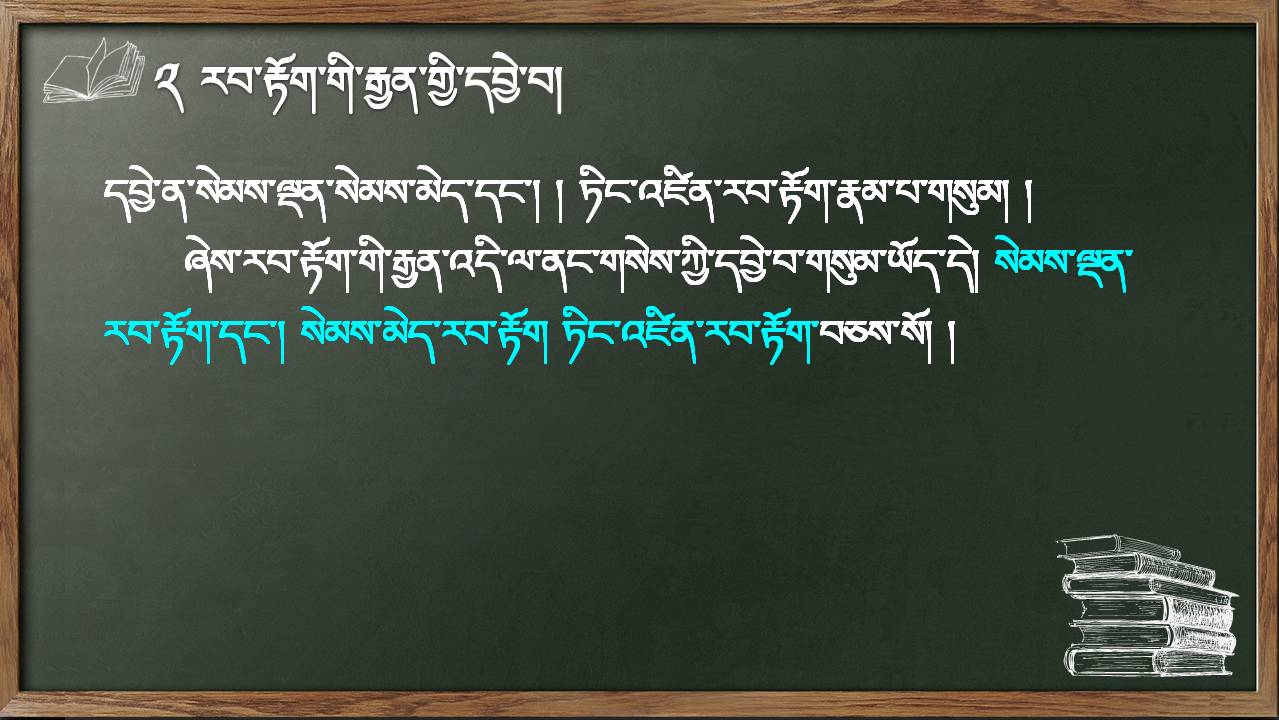 ༢ རབ་རྟོག་གི་རྒྱན་གྱི་དབྱེ་བ།
དབྱེ་ན་སེམས་ལྡན་སེམས་མེད་དང་། ། ཏིང་འཛིན་རབ་རྟོག་རྣམ་པ་གསུམ། །
ཞེས་རབ་རྟོག་གི་རྒྱན་འདི་ལ་ནང་གསེས་ཀྱི་དབྱེ་བ་གསུམ་ཡོད་དེ། སེམས་ལྡན་
རབ་རྟོག་དང་། སེམས་མེད་རབ་རྟོག ཏིང་འཛིན་རབ་རྟོག་བཅས་སོ། །